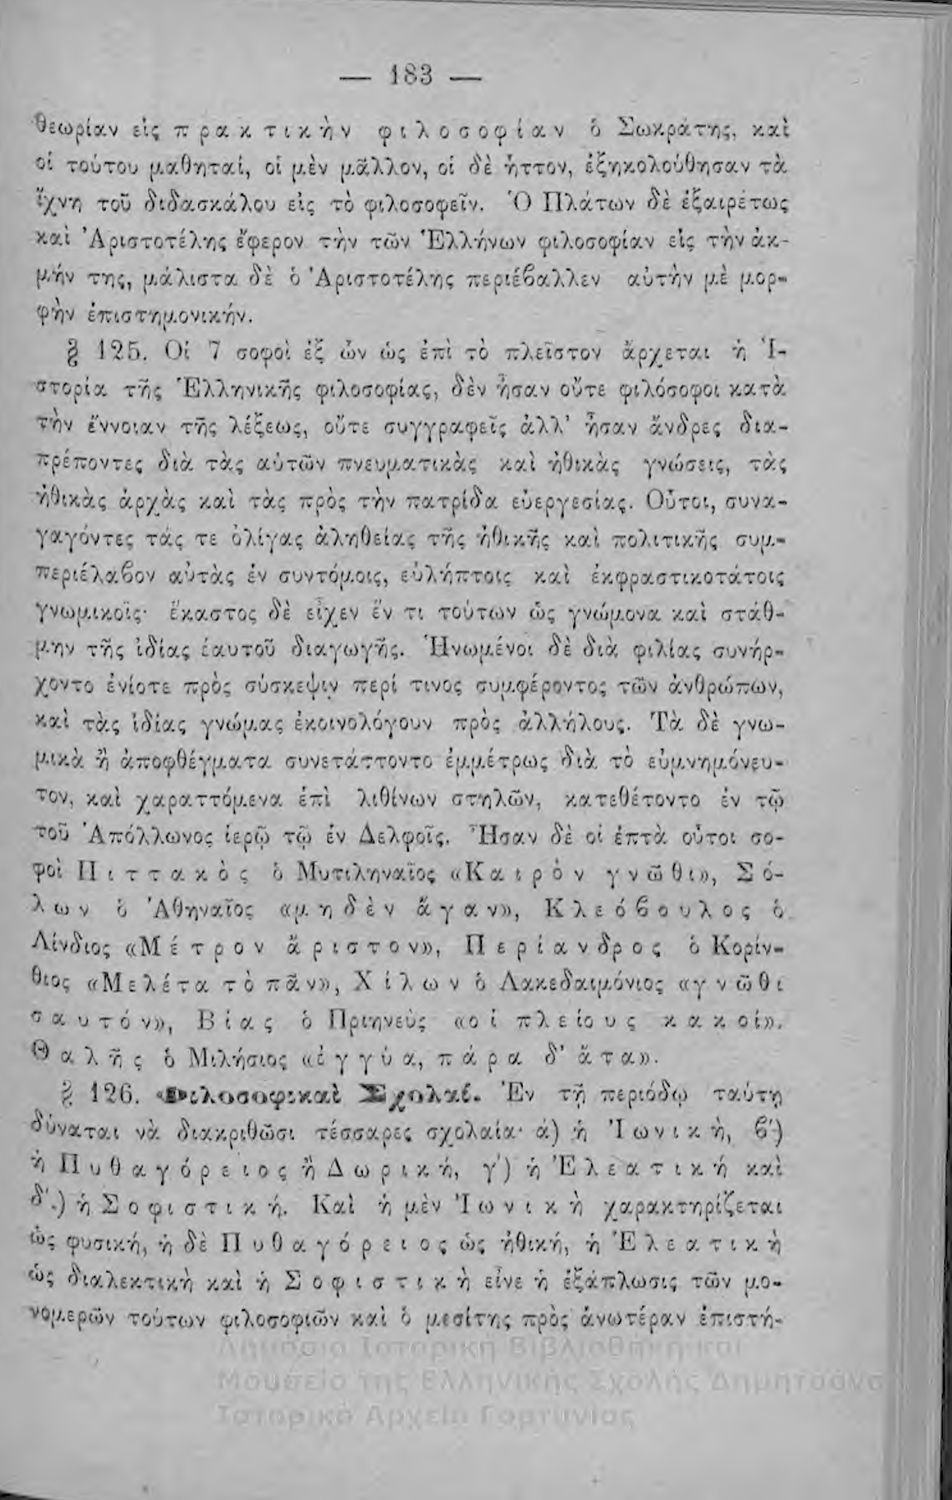 — 183 —
θεωρίαν εἰς πρακτικὴν φιλοσοφίαν ὁ Σωκράτης, καὶ
οἱ τούτου μαθηταί, οἱ μὲν μᾶλλον, οἱ δὲ ἧττον, ἐξηκολούθησαν τὰ
ἴχνη τοῦ διδασκάλου εἰς τὸ φιλοσοφεῖν. Ὁ Πλάτων δὲ ἐξαιρέτως
καὶ Ἀριστοτέλης ἔφερον τὴν τῶν Ἑλλήνων φιλοσοφίαν εἰς τὴν ἀκ-
μήν της, μάλιστα δὲ ὁ Ἀριστοτέλης περιέβαλλεν αὐτὴν μὲ μορ-
φὴν ἐπιστημονικήν.
§ 125. Οἱ 7 σοφοὶ ἐξ ὧν ὡς ἐπὶ τὸ πλεῖστον ἄρχεται ἡ Ἱ-
στορία τῆς Ἑλληνικῆς φιλοσοφίας, δὲν ἦσαν οὔτε φιλόσοφοι κατὰ
τὴν ἔννοιαν τῆς λέξεως, οὔτε συγγραφεῖς ἀλλ' ἦσαν ἄνδρες δια-
πρέποντες διὰ τὰς αὐτῶν πνευματικὰς καὶ ἠθικὰς γνώσεις, τὰς
ἠθικὰς ἀρχὰς καὶ τὰς πρὸς τὴν πατρίδα εὐεργεσίας. Οὗτοι, συνα-
γαγόντες τάς τε ὀλίγας ἀληθείας τῆς ἠθικῆς καὶ πολιτικῆς συμ-
περιέλαβον αὐτὰς ἐν συντόμοις, εὐλήπτοις καὶ ἐκφραστικοτάτοις
γνωμικοῖς· ἕκαστος δὲ εἶχεν ἕν τι τούτων ὡς γνώμονα καὶ στάθ-
μην τῆς ἰδίας ἑαυτοῦ διαγωγῆς. Ἡνωμένοι δὲ διὰ φιλίας συνήρ-
χοντο ἐνίοτε πρὸς σύσκεψιν περί τινος συμφέροντος τῶν ἀνθρώπων,
καὶ τὰς ἰδίας γνώμας ἐκοινολόγουν πρὸς ἀλλήλους. Τὰ δὲ γνω-
μικὰ ἢ ἀποφθέγματα συνετάττοντο ἐμμέτρως διὰ τὸ εὐμνημόνευ-
τον, καὶ χαραττόμενα ἐπὶ λιθίνων στηλῶν, κατεθέτοντο ἐν τῷ
τοῦ Ἀπόλλωνος ἱερῷ τῷ ἐν Δελφοῖς. Ἦσαν δὲ οἱ ἑπτὰ οὗτοι σο-
φοὶ Πιττακὸς ὁ Μυτιληναῖος «Καιρὸν γνῶθι», Σό-
λων ὁ Ἀθηναῖος «μηδὲν ἄγαν», Κλεόβουλος ὁ
Λίνδιος «Μέτρον ἄριστον», Περίανδρος ὁ Κορίν-
θιος «Μελέτα τὸ πᾶν», Χίλων ὁ Λακεδαιμόνιος «γνῶθι
σαυτόν», Βίας ὁ Πριηνεὺς «οἱ πλείους κακοί».
Θαλῆς ὁ Μιλήσιος «ἐγγύα, πάρα δ' ἄτα».
§ 126. Φιλοσοφικαὶ Σχολαί. Ἐν τῇ περιόδῳ ταύτῃ
δύναται νὰ διακριθῶσι τέσσαρες σχολαία· ά) ἡ Ἰωνικὴ, β')
ἡ Πυθαγόρειος ἢ Δωρική, γ') ἡ Ἐλεατική καὶ
δ'.) ἡ Σοφιστική. Καὶ ἡ μὲν Ἰωνικὴ χαρακτηρίζεται
ὡς φυσική, ἡ δὲ Πυθαγόρειος ὡς ἠθική, ἡ Ἐλεατικὴ
ὡς διαλεκτικὴ καὶ ἡ Σοφιστικὴ εἶνε ἡ ἐξάπλωσις τῶν μο-
νομερῶν τούτων φιλοσοφιῶν καὶ ὁ μεσίτης πρὸς ἀνωτέραν ἐπιστή-
Δημόσια Ιστορική Βιβλιοθήκη και
Μουσείο της Ελληνικής Σχολής Δημητσάνας
Ιστορικό Αρχείο Γορτυνίας